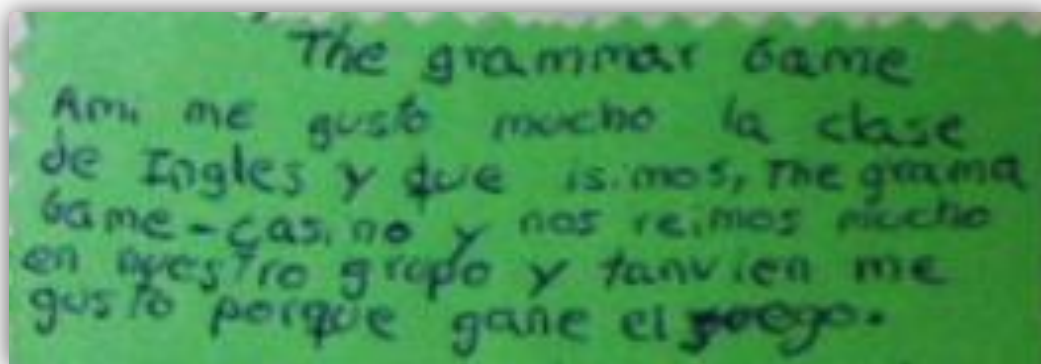 The grammar Game
Ami me gustó mucho la clase
de Ingles y que isimos, The grama
Game-casino y nos reimos mucho
en nyestro grupo y tanvien me
gustó porque gane el juego.